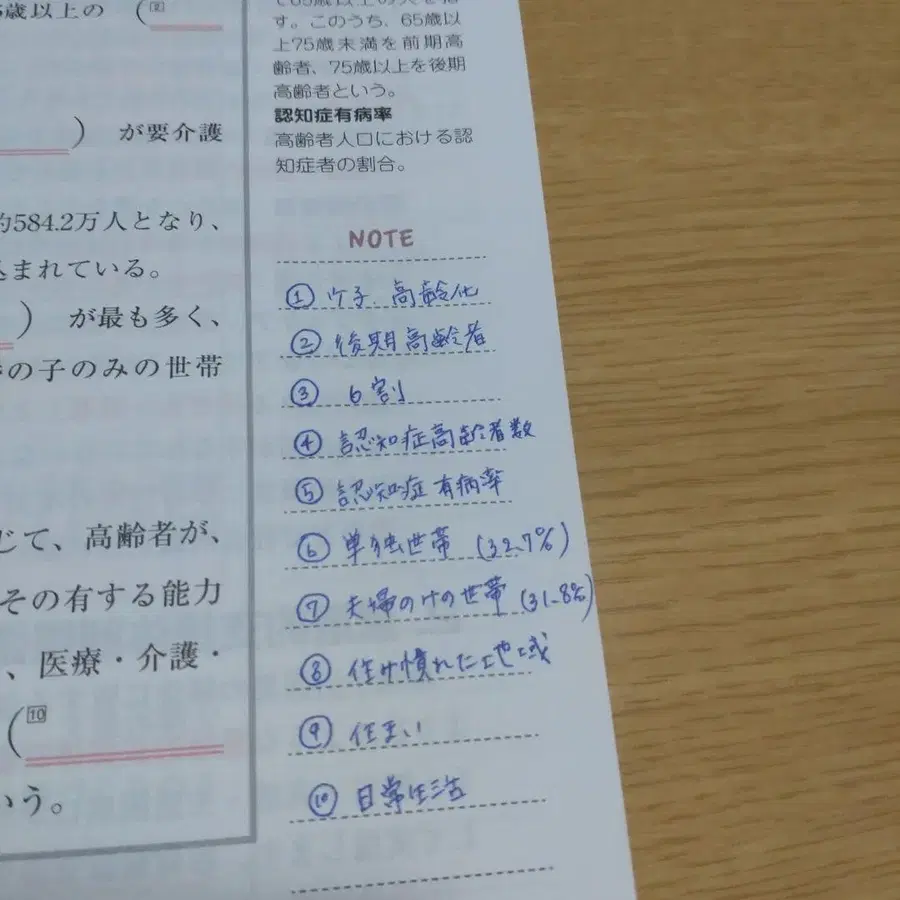 歳以上の (2
) が要介護
約584.2万人となり、
込まれている。
) が最も多く、
の子のみの世帯
じて、高齢者が、
その有する能力
、医療・介護・
(10
いう。
て65歳以上の人を指
す。このうち、65歳以
上75歳未満を前期高
齢者、75歳以上を後期
高齢者という。
認知症有病率
高齢者人口における認
知症者の割合。
NOTE
① 少子 高齢化
② 後期高齢者
③ 6割
④ 認知症高齢者数
⑤ 認知症有病率
⑥ 単独世帯 (32.7%)
⑦ 夫婦のけの世帯 (31.8%)
⑧ 住み慣れた地域
⑨ 住まい
⑩ 日常生活